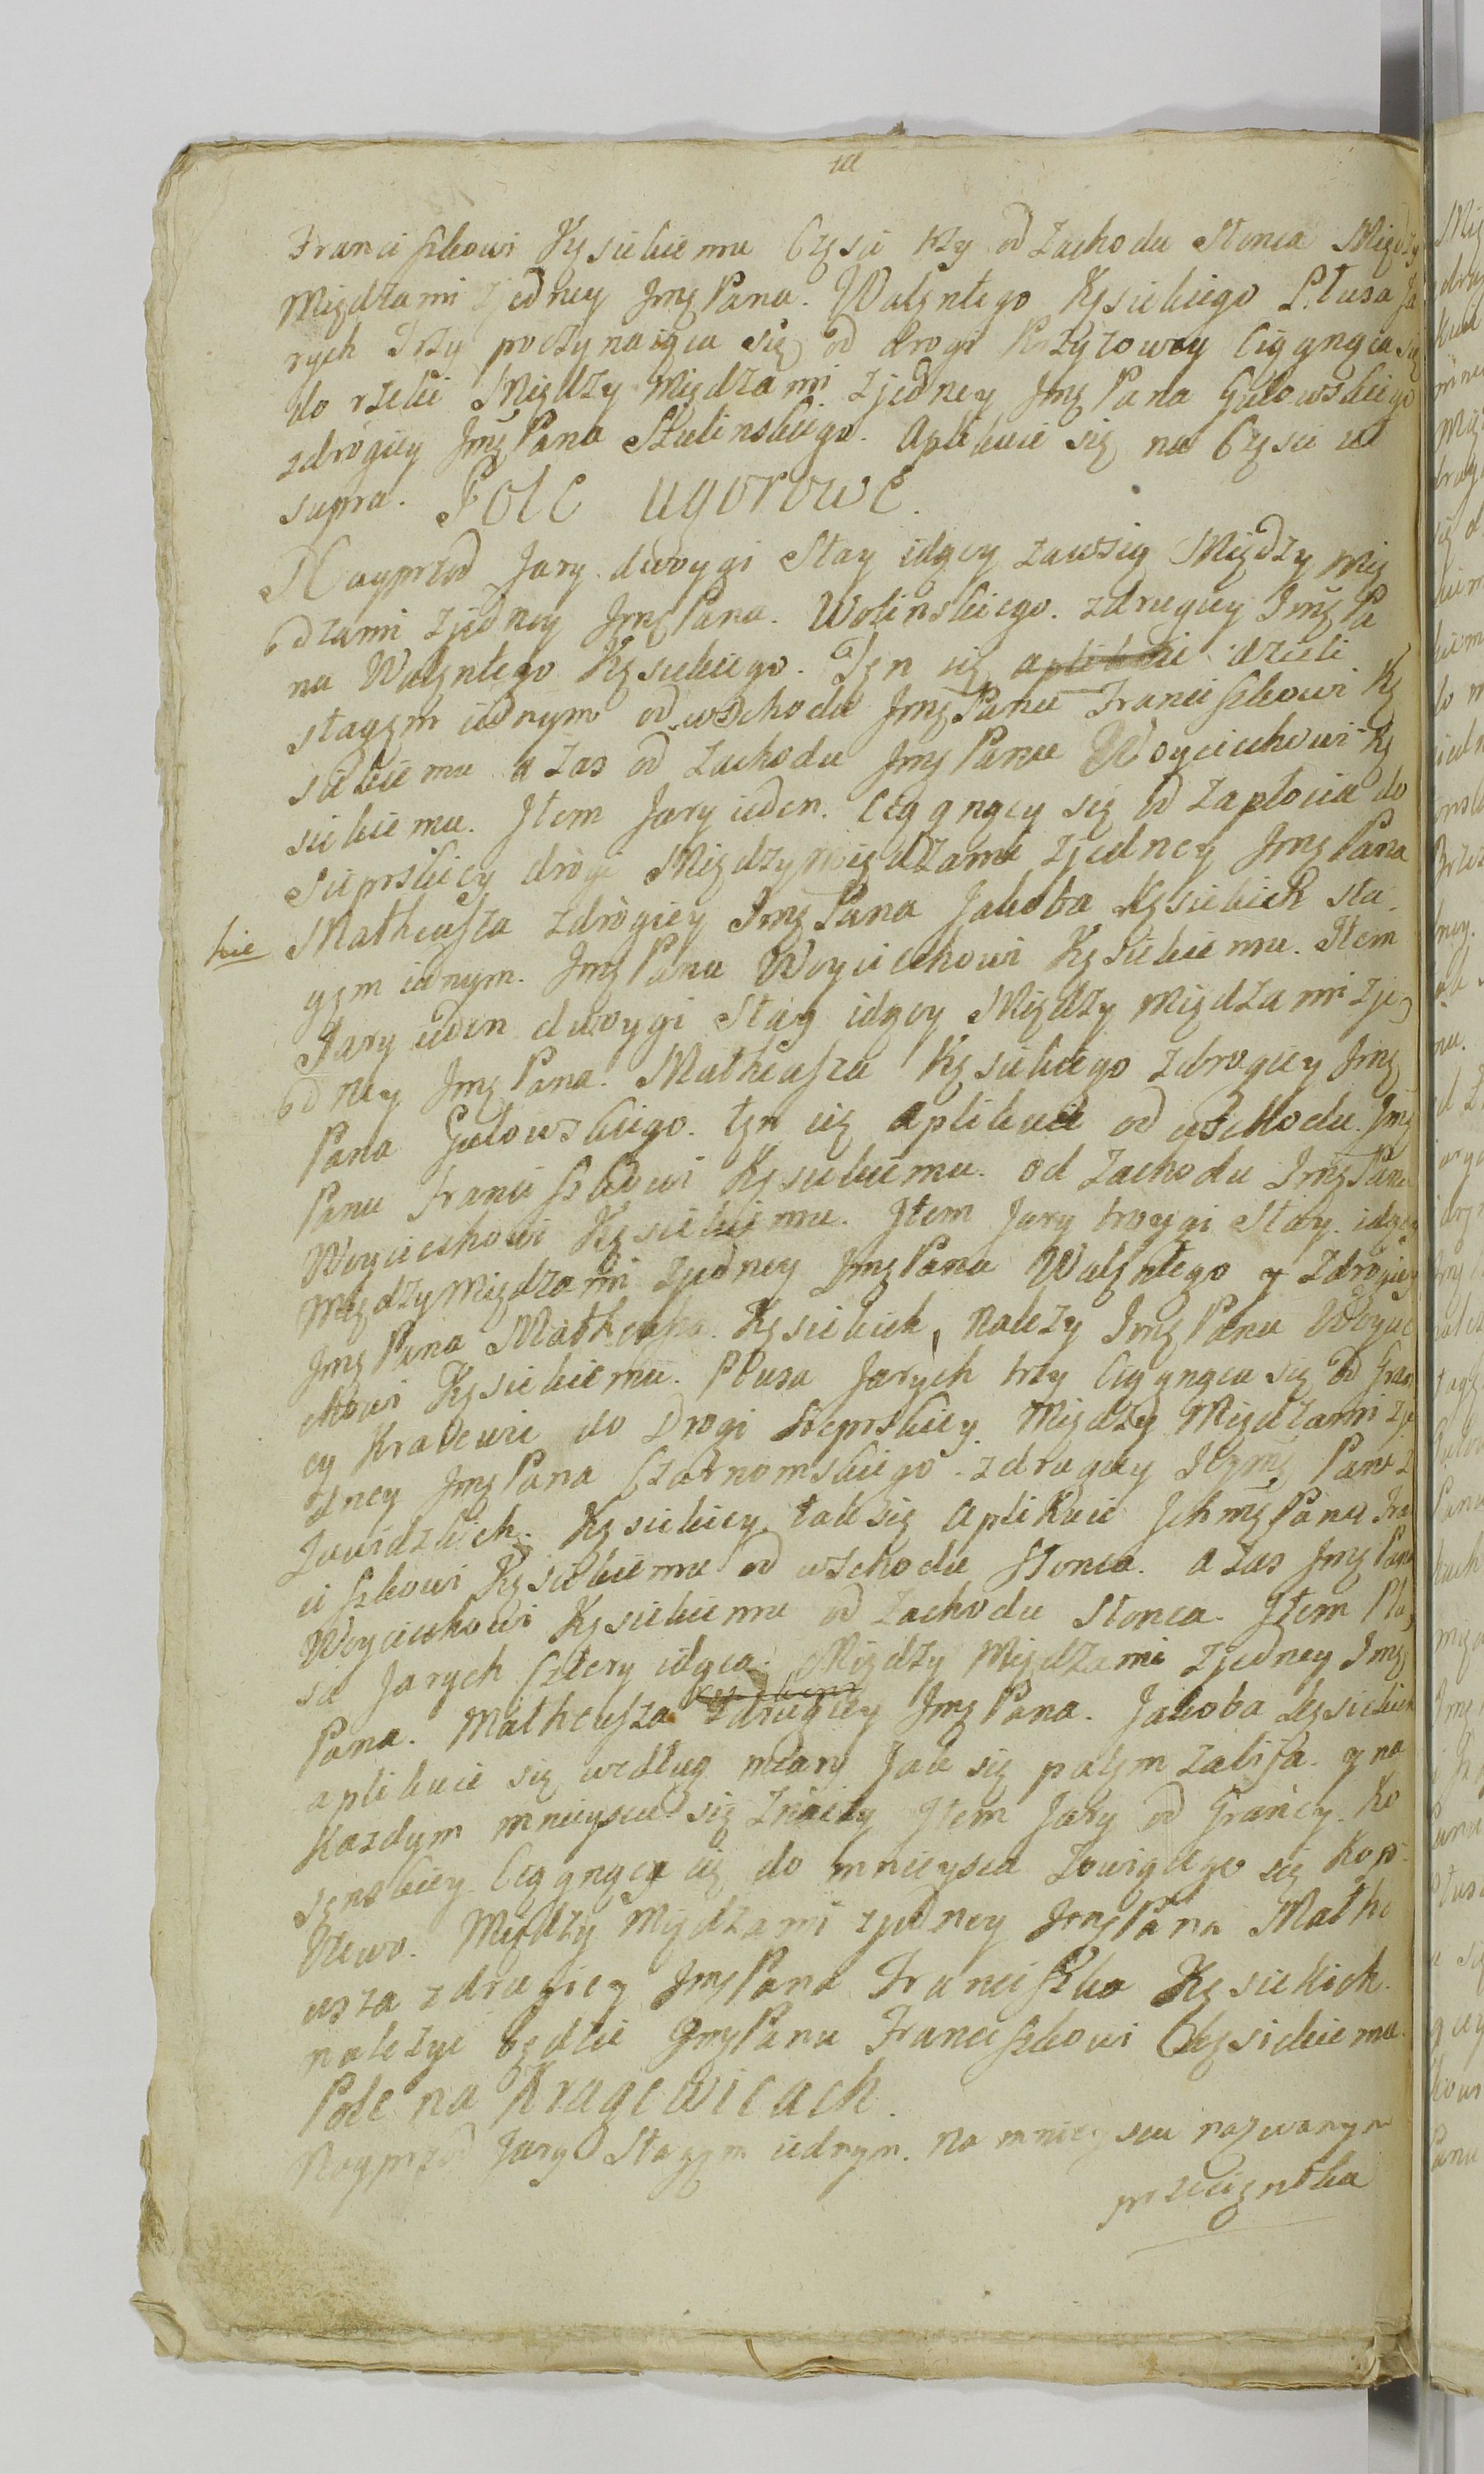 Franciszkowi Kęsickiemu Częsci trzy od zachodu Słonca Między
Międzami zjedney Jmę Pana. Walęntego Kęsickiego Płusa Ja
rych Trzy poczynaiąca się od drogi Krzyzowey Ciągnąca się
do rzeki Między Międzami zjedney Jmę Pana Gutowskiego
zdrògiey Jmę Pana Skulinskiego. Aplikuie się na Częsci ut
supra. Pole ugorowe.
Nayprzod Jary dwoygi Stay idący zawsią Między mię
dzami zjedney Jmę Pana. Wolinskiego. zdrugiey Jmę Pa
na Walęntego Kęsickiego. Tęn się aplikuie dzieli
stayęm iednym od wschodu Jmę Panu Franciszkowi Kę
sickiemu a zas od zachodu Jmę Panu Woyciechowi Kę
sickiemu. Jtem Jary ieden. Ciągnący się od zapłocia do
Sieprskiey drògi Między międzami zjedney Jmę Pana
kie Matheusza zdrògiey Jmę Pana Jakoba Kęsickich sta
yęm iednym. Jmę Panu Woyciechowi Kęsickiemu. Jtem
Jary ieden dwoygi Stay idący Między Międzami zje
dney Jmę Pana. Matheusza Kęsickiego zdrogiey Jmę
Pana Gutowskiego. tęn się Aplikuie od wschodu. Jmę
Panu Franciszkowi Kęsickiemu. od zachodu Jmę Panu
Woyciechowi Kęsickiemu. Jtem Jary troygi Stay. idący
Między Międzami zjedney Jmę Pana Walęntego y zdrògiey
Jmę Pana Matheusza. Kęsickich, Nalezy Jmę Panu Woycie
chowi Kęsickiemu. Płusa Jarych trzy Ciągnąca się od Grani
cy do Drogi Sieprskiey. Między Międzami zje
dney Jmę Pana Czarnomskiego. zdrugiey Jmę Pani z
Zawidzkich. Kęsickiey. tak się Aplikuie Jchmę Panu Fra
ciszkowi Kęsickiemu od wschodu Słonca. a zas Jmę Panu
Woyciechowi Kęsickiemu od zachodu Słonca. Jtem Płu
sa Jarych sztery idąca. Między Międzami zjedney Jmę
Pana. Matheusza zdrugiey Jmę Pana. Jakoba Kęsickich
aplikuie się według miary Jak się palęm zabija. y na
Kazdym mnieyscu się znaczy Jtem Jary od Grańcy. Ko
sęnskiey. Ciągnący się do mnieysca Zowiącego się Kop
Między Międzami zjedney Jmę Pana Mathe
usza zdrugiey Jmę Pana Franciszka Kęsickich.
nalezyc będzie Jmę Panu Franciszkowi Kęsickiemu.
Pole na Kragewicach.
Nayprzod Jary Stayęm iednym. Na mnieyscu nazwanym
przecięntka